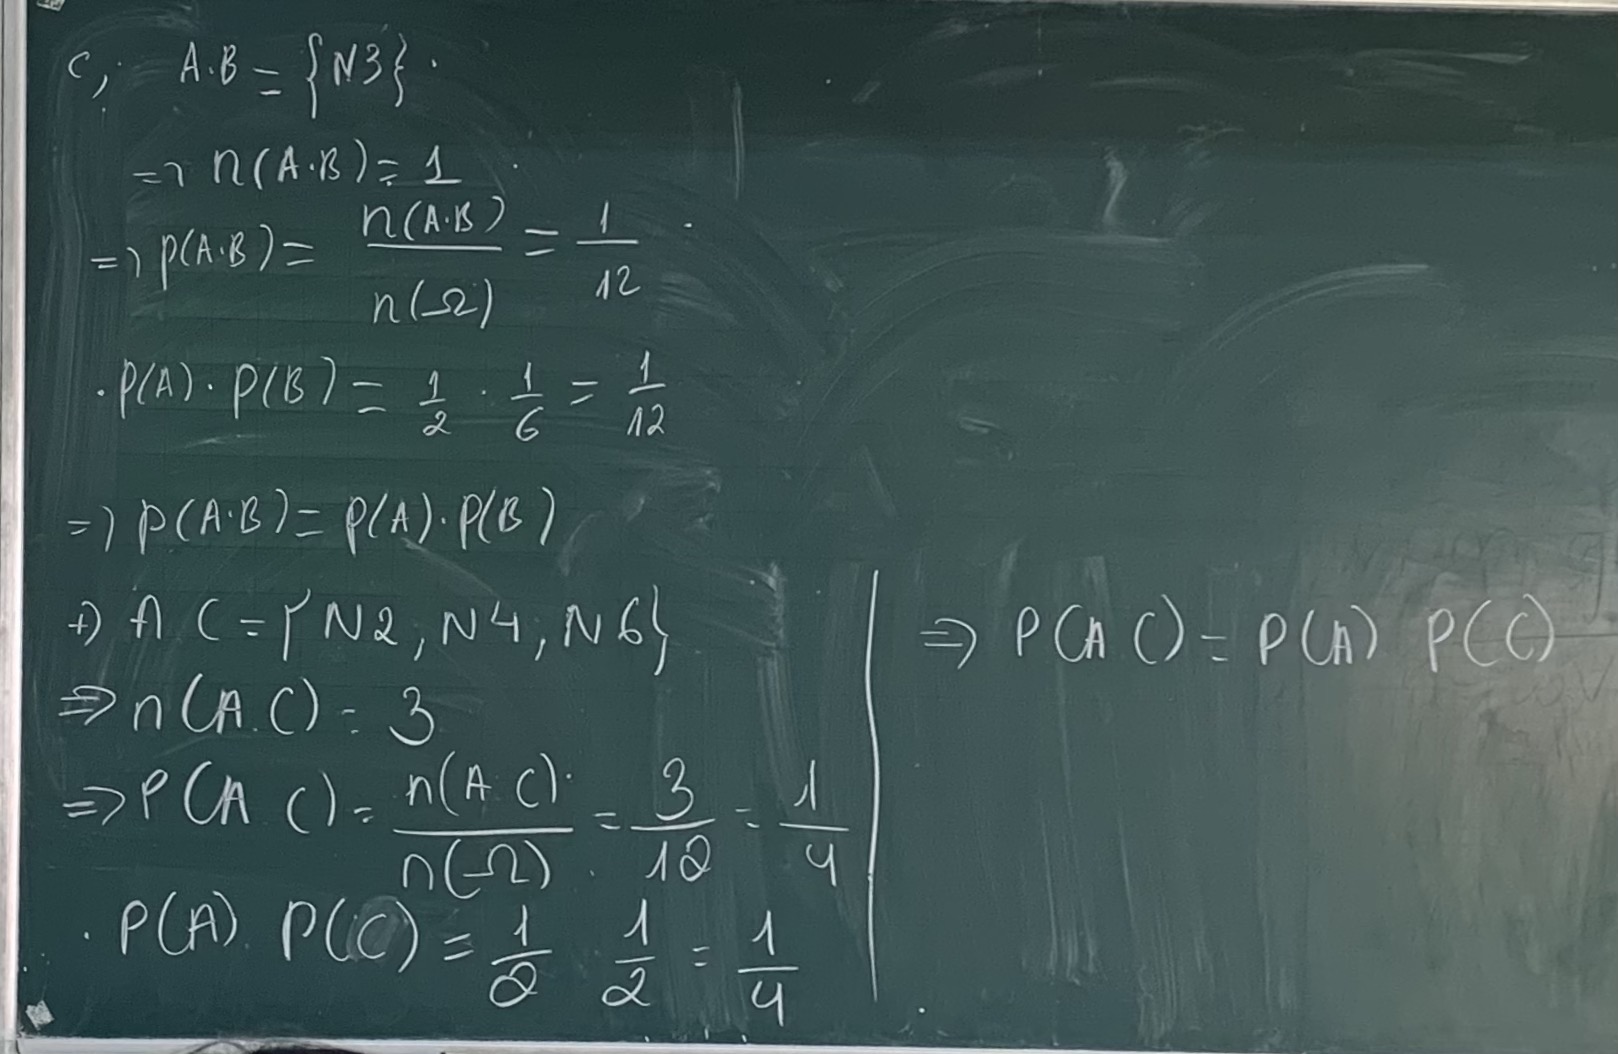 c, A.B = {N3}.
=> n(A.B) = 1
=> P(A.B) = n(A.B)/n(Ω) = 1/12
. P(A) . P(B) = 1/2 . 1/6 = 1/12
=> P(A.B) = P(A).P(B)
+) A C = {N2, N4, N6}
=> n(A.C) = 3
=> P(A C) = n(A C)/n(Ω) = 3/12 = 1/4
. P(A) P(C) = 1/2 1/2 = 1/4
=> P(A C) = P(A) P(C)